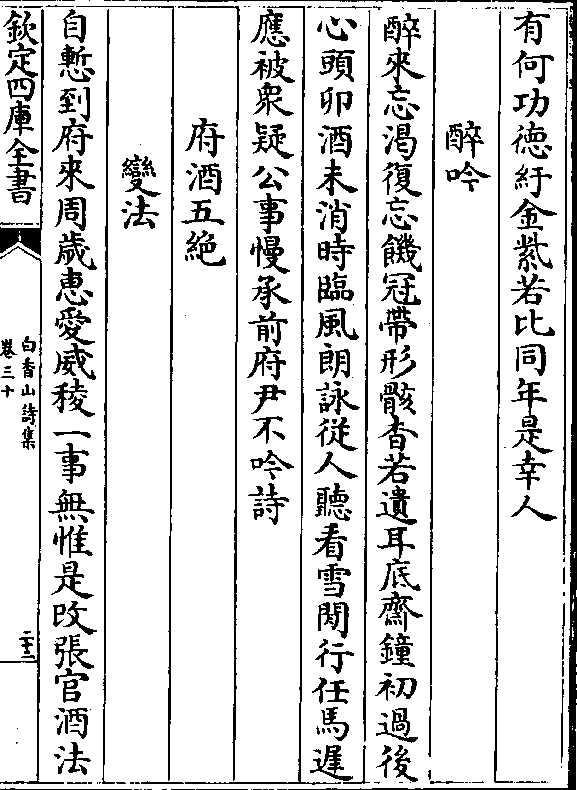 有何功德紆金紫若比同年是幸人
醉吟
醉來忘渴復忘饑冠帶形骸杳若遺耳底齋鐘初過後
心頭卯酒未消時臨風朗詠從人聽看雪閒行任馬遲
應被衆疑公事慢承前府尹不吟詩
府酒五絶
變法
自慙到府來周歳惠愛威稜一事無惟是改張官酒法
欽定四庫全書
白香山詩集
卷三十
二十二